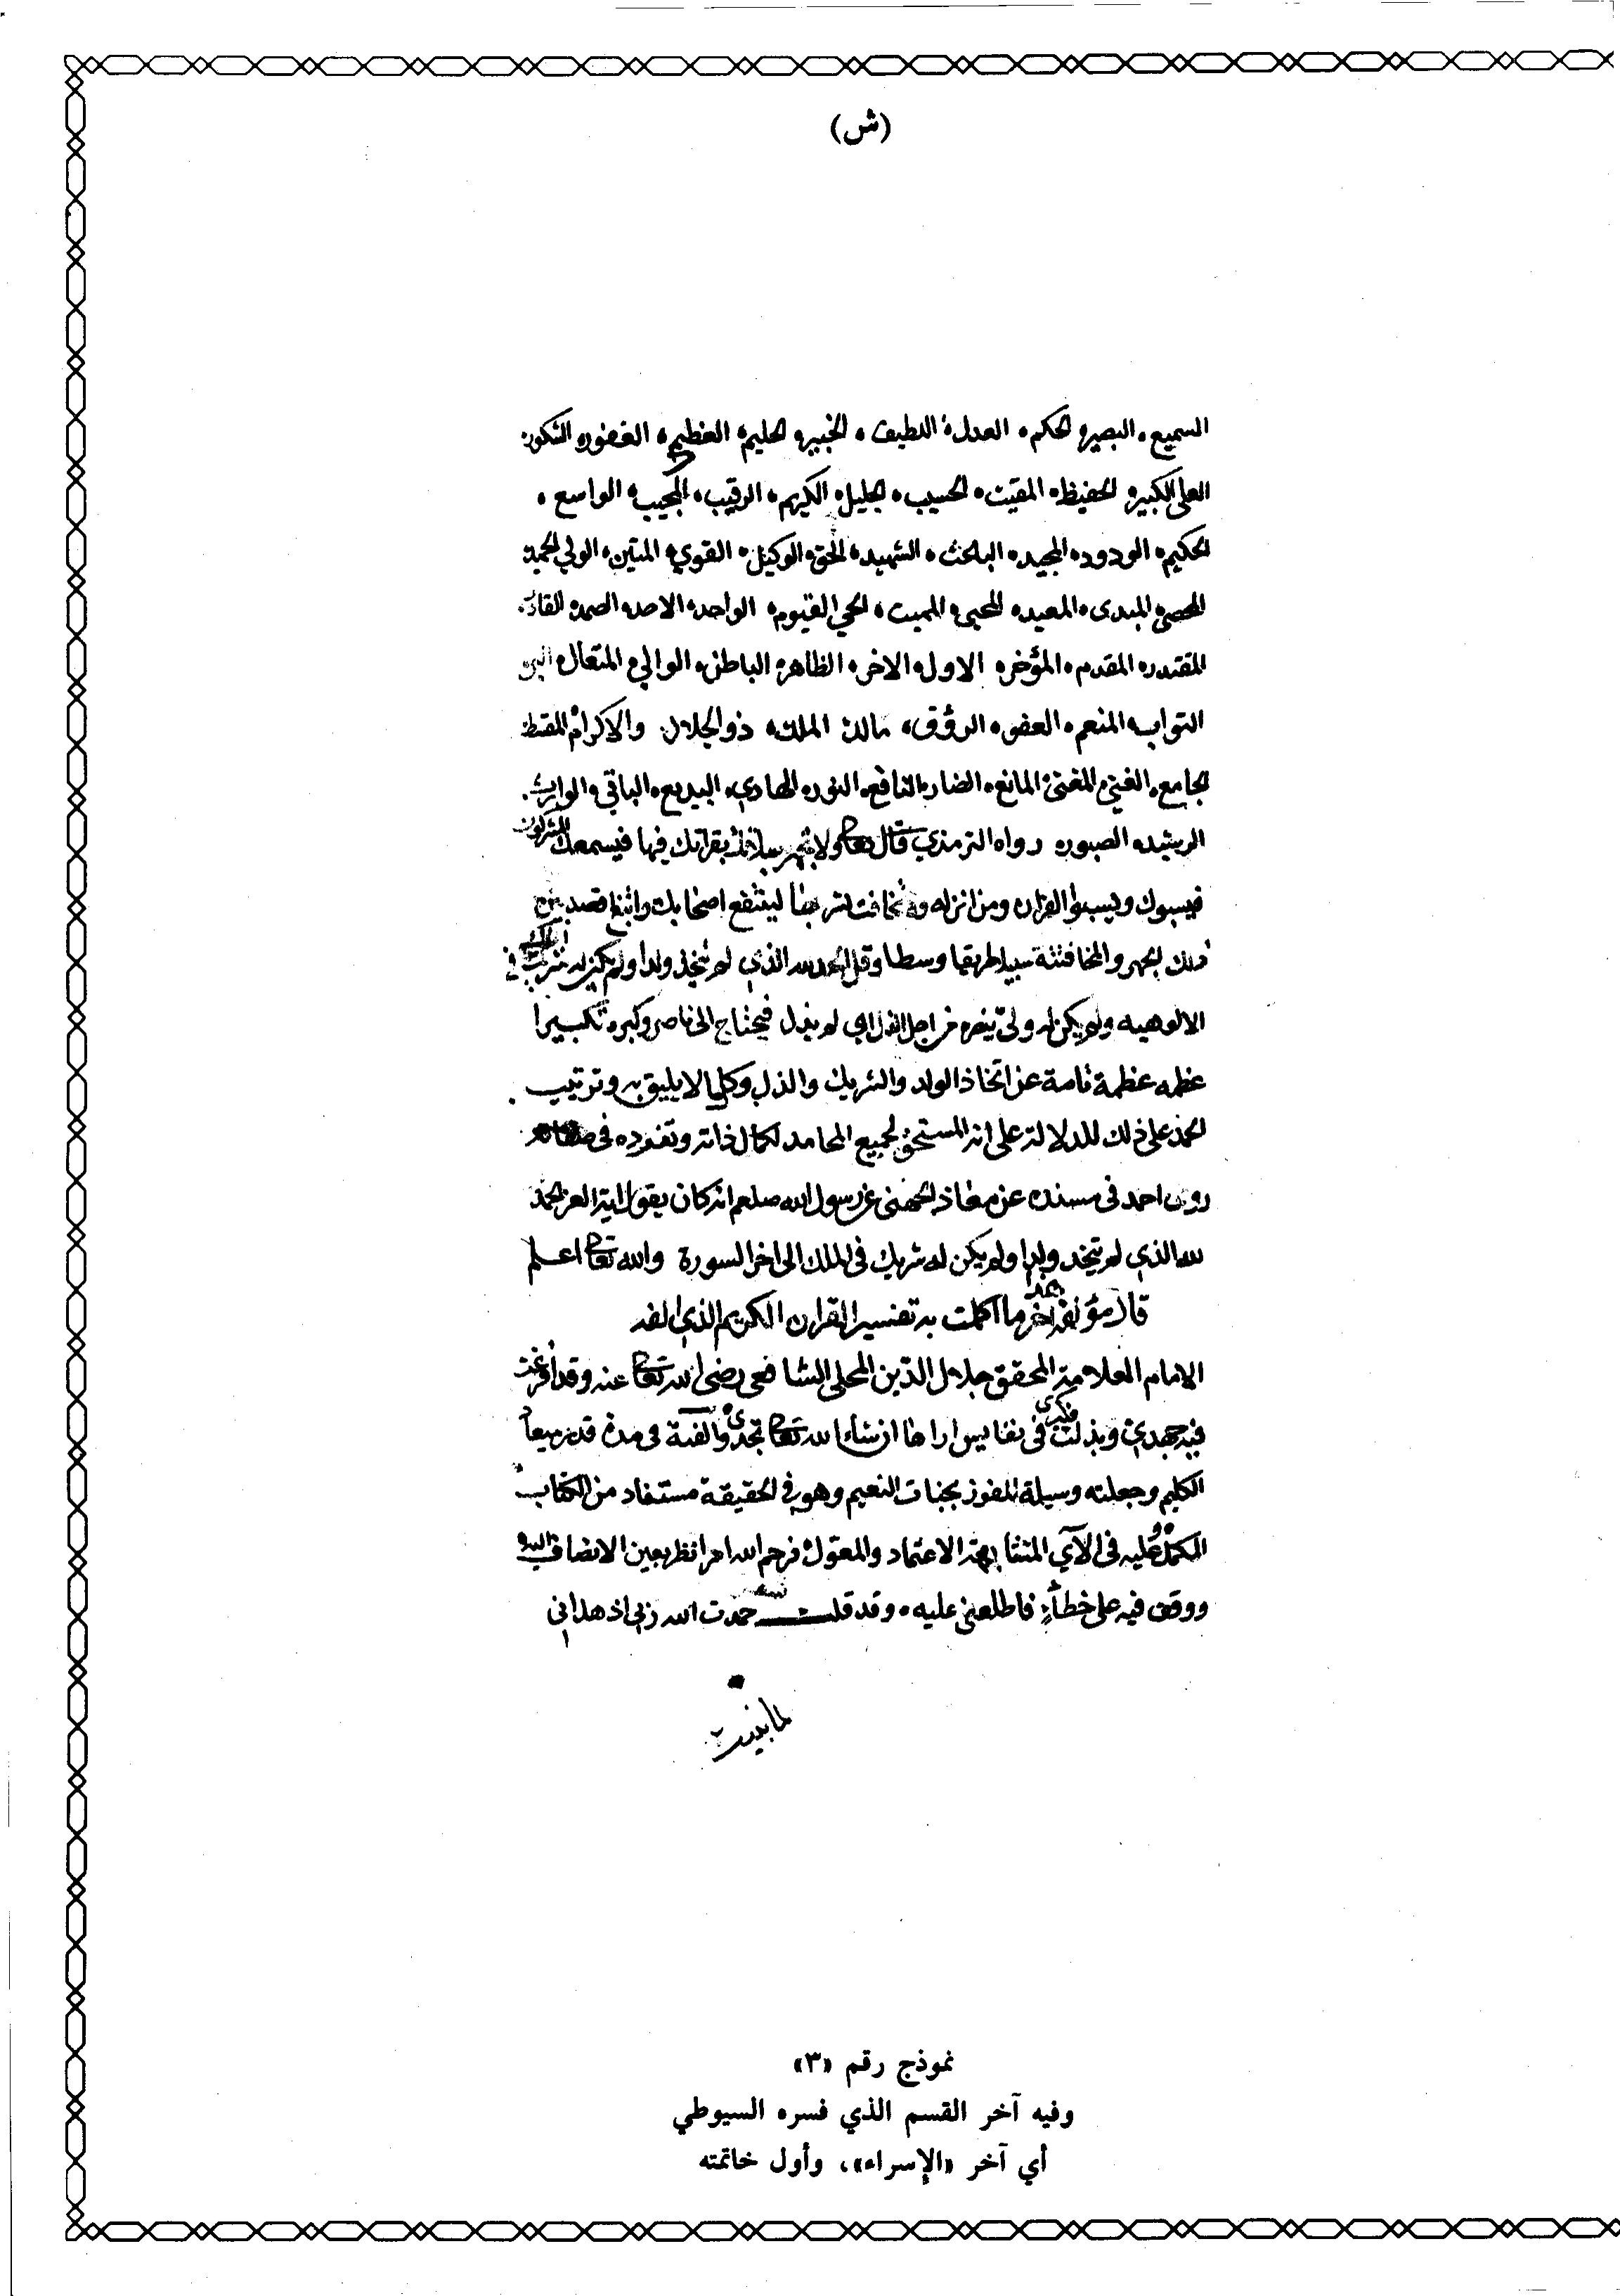 (ش)
السميع، البصير، الحكم، العدل، اللطيف، الخبير، الحليم، العظيم، الغفور، الشكور،
العلي الكبير، الحفيظ، المقيت، الحسيب، الجليل، الكريم، الرقيب، المجيب، الواسع،
الحكيم، الودود، المجيد، الباعث، الشهيد، الحق، الوكيل، القوي، المتين، الولي، الحميد
المحصي، المبدى، المعيد، المحيي، المميت، الحي، القيوم، الواحد، الاحد، الصمد، القادر،
المقتدر، المقدم، المؤخر، الاول، الاخر، الظاهر، الباطن، الوالي، المتعال، البر
التواب، المنعم، العفو، الرؤف، مالك الملك، ذو الجلال والاكرام، المقسط
الجامع، الغني، المغني، المانع، الضار، النافع، النور، الهادي، البديع، الباقي، الوارث،
الرشيد، الصبور، رواه الترمذي قال تعالى ولا تجهر بصلاتك بقراتك فيها فيسمعك المشركون
فيسبوك ويسبوا القران ومن انزله ولا تخافت تسر بها لينتفع اصحابك وابتغ اقصد بين
ذلك الجهر والمخافتة سبيلا طريقا وسطا وقل الحمد لله الذي لم يتخذ ولدا ولم يكن له شريك في الملك
الالوهيه ولم يكن له ولي ينصره من اجل الذل اي لم يذل فيحتاج الى ناصر وكبره تكبيرا
عظمه عظمة تامة عن اتخاذ الولد والشريك والذل وكل ما لا يليق به وترتيب
الحمد على ذلك للدلالة على انه المستحق لجميع المحامد لكمال ذاته وتفرده في صفاته
روى احمد في مسنده عن معاذ الجهني عن رسول الله صلعم انه كان يقول اية العز الحمد
لله الذي لم يتخذ ولدا ولم يكن له شريك في الملك الى اخر السورة والله تعالى اعلم
قال مؤلفه هذا اخر ما اكملت به تفسير القران الكريم الذي الفه
الامام العلامة المحقق جلال الدين المحلي الشافعي رضي الله تعالى عنه وقد افرغت
فيه جهدي وبذلت فكري في نفايس اراها ان شاء الله تعالى تجدي والفته في مدة قدر ميعاد
الكليم وجعلته وسيلة للفوز بجنات النعيم وهو في الحقيقة مستفاد من الكتاب
المكمل وعليه في الآي المتشابهة الاعتماد والمعول فرحم الله امرا نظر بعين الانصاف اليه
ووقف فيه على خطأ فاطلعني عليه، وقد قلت حمدت الله ربي اذ هداني
لما ابديت
نموذج رقم «٣»
وفيه آخر القسم الذي فسره السيوطي
أي آخر «الإسراء»، وأول خاتمته